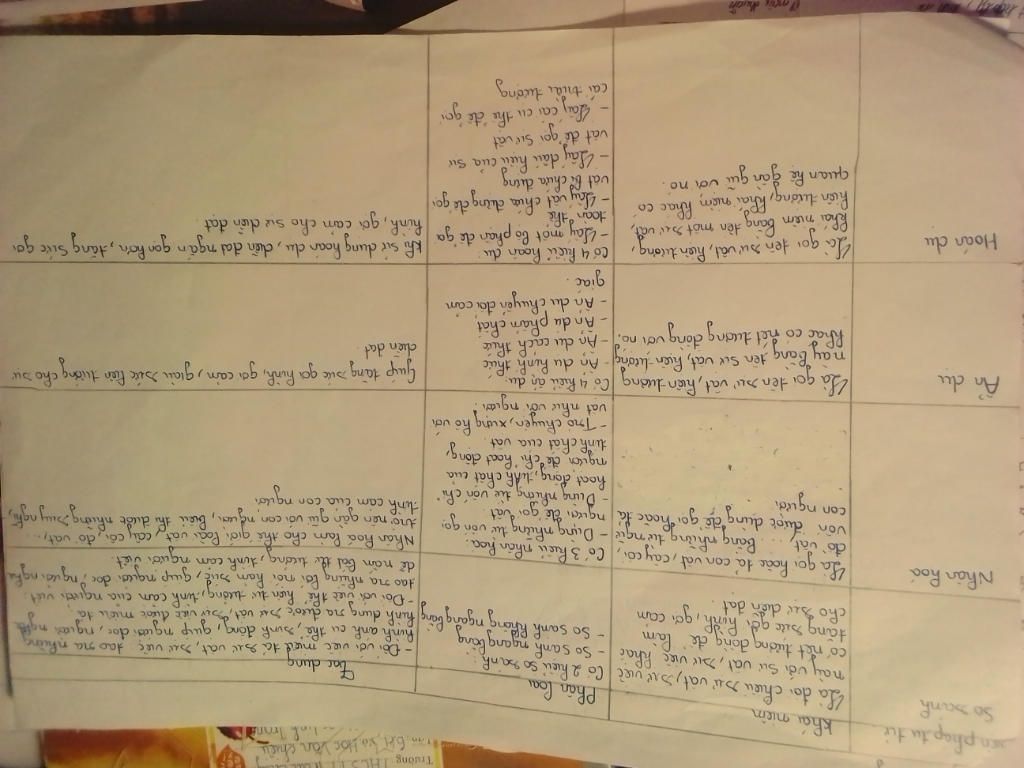 phép tu từ
Khái niệm
Phân loại
Tác dụng
So sánh
Là đối chiếu sự vật, sự việc
này với sự vật, sự việc khác
có nét tương đồng để làm
tăng sức gợi hình, gợi cảm
cho sự diễn đạt
Có 2 kiểu so sánh
- So sánh ngang bằng
- So sánh không ngang bằng
- Đối với việc miêu tả sự vật, sự việc tạo ra những
hình ảnh cụ thể, sinh động, giúp người đọc, người nghe
hình dung ra được sự vật, sự việc được miêu tả
- Đối với việc thể hiện tư tưởng, tình cảm của người viết:
tạo ra những lối nói hàm súc, giúp người đọc, người nghe
dễ nắm bắt tư tưởng, tình cảm người viết.
Nhân hoá
Là gọi hoặc tả con vật, cây cối,
đồ vật ... bằng những từ ngữ
vốn được dùng để gọi hoặc tả
con người
Có 3 kiểu nhân hóa:
- Dùng những từ vốn gọi
người để gọi vật
- Dùng những từ vốn chỉ
hoạt động, tính chất của
người để chỉ hoạt động,
tính chất của vật
- Trò chuyện, xưng hô với
vật như với người.
Nhân hóa làm cho thế giới loài vật, cây cối, đồ vật,...
trở nên gần gũi với con người, biểu thị được những suy nghĩ,
tình cảm của con người
Ẩn dụ
Là gọi tên sự vật, hiện tượng
này bằng tên sự vật, hiện tượng
khác có nét tương đồng với nó.
Có 4 kiểu ẩn dụ
- Ẩn dụ hình thức
- Ẩn dụ cách thức
- Ẩn dụ phẩm chất
- Ẩn dụ chuyển đổi cảm
giác.
Giúp tăng sức gợi hình, gợi cảm, giàu sức biểu tượng cho sự
diễn đạt
Hoán dụ
Là gọi tên sự vật, hiện tượng,
khái niệm bằng tên một sự vật,
hiện tượng, khái niệm khác có
quan hệ gần gũi với nó.
Có 4 kiểu hoán dụ
- Lấy một bộ phận để gọi
toàn thể
- Lấy vật chứa đựng để gọi
vật bị chứa đựng
- Lấy dấu hiệu của sự
vật để gọi sự vật
- Lấy cái cụ thể để gọi
cái trừu tượng
Khi sử dụng hoán dụ, diễn đạt ngắn gọn hơn, tăng sức gợi
hình, gợi cảm cho sự diễn đạt.
Trường THCS